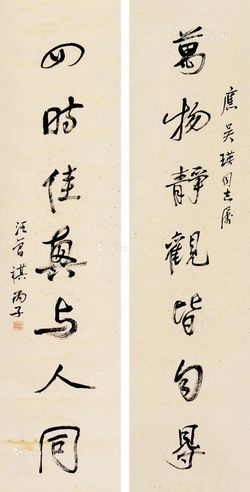 應吴瑛同志属
萬物靜觀皆自㝵
四時佳興与人同
汪曾祺 丙子